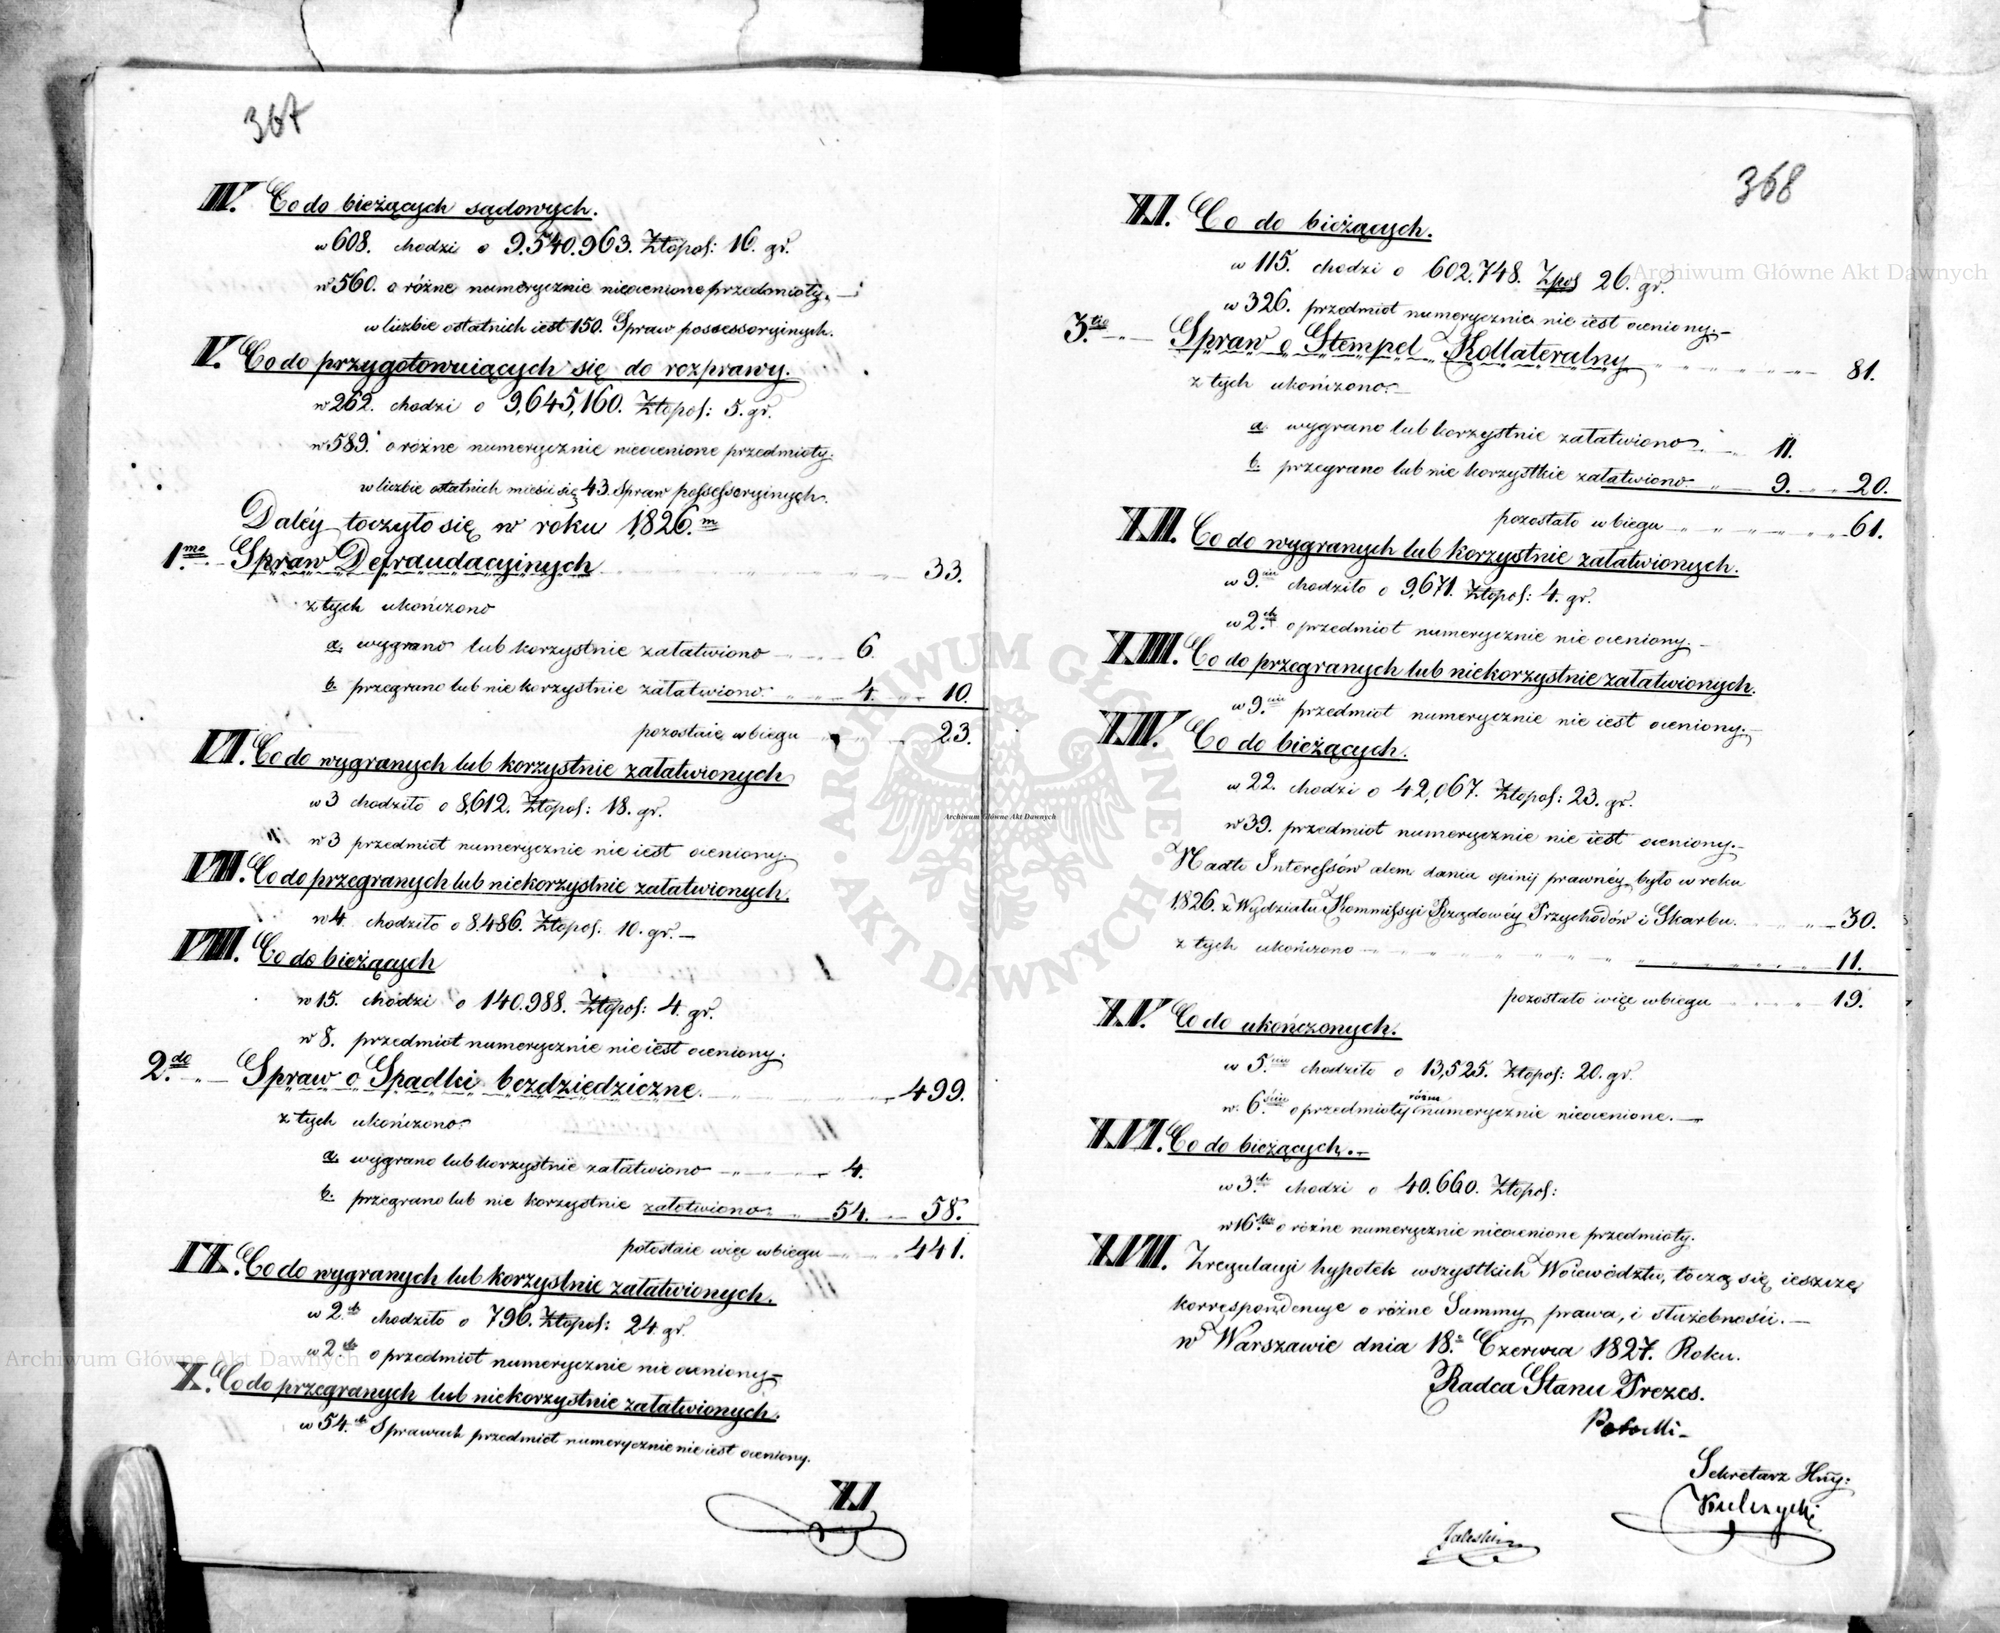 367
IV. Co do bieżących sądowych.
w 608. chodzi o 9.540.963. Złopol: 16. gr.
w 560. o różne numerycznie nieocenione przedmioty. —
w liczbie ostatnich iest 150. Spraw possessoryinych.
V. Co do przygotowuiących się do rozprawy.
w 262. chodzi o 9,645,160. Złopol: 5. gr.
w 589. o różne numerycznie nieocenione przedmioty.
w liczbie ostatnich mieści się 43. Spraw possessoryinych.
Daléy toczyło się w roku 1826.m
1.mo Spraw Defraudacyinych 33.
z tych ukończono
a. wygrano lub korzystnie załatwiono 6.
b. przegrano lub nie korzystnie załatwiono 4. 10.
pozostaie w biegu 23.
VI. Co do wygranych lub korzystnie załatwionych
w 3 chodziło o 8,612. Złopol: 18. gr.
w 3 przedmiot numerycznie nie iest oceniony.
VII. Co do przegranych lub niekorzystnie załatwionych.
w 4. chodziło o 8.486. Złopol. 10. gr. —
VIII. Co do bieżących
w 15. chodzi o 140.988. Złopol: 4. gr.
w 8. przedmiot numerycznie nie iest oceniony.
2.do Spraw o Spadki bezdziedziczne. 499.
z tych ukończono
a. wygrano lub korzystnie załatwiono 4.
b. przegrano lub nie korzystnie załatwiono 54. 58.
potostaie więc w biegu 441.
IX. Co do wygranych lub korzystnie załatwionych.
w 2.ch chodziło o 796. Złopol: 24. gr.
w 2.ch o przedmiot numerycznie nie oceniony —
X. Co do przegranych lub niekorzystnie załatwionych.
w 54.ch Sprawach przedmiot numerycznie nie iest oceniony.
XI
368
XI. Co do bieżących.
w 115. chodzi o 602.748. Zpol 26. gr.
w 326. przedmiot numerycznie nie iest oceniony. —
3.tio Spraw o Stempel Kollateralny 81.
z tych ukończono. —
a. wygrano lub korzystnie załatwiono 11.
b. przegrano lub nie korzystkie załatwiono 9. 20.
pozostało w biegu 61.
XII. Co do wygranych lub korzystnie załatwionych.
w 9.ciu chodziło o 9,671. Złopol: 4. gr.
w 2.ch o przedmiot numerycznie nie oceniony. —
XIII. Co do przegranych lub niekorzystnie załatwionych.
w 9.ciu przedmiot numerycznie nie iest oceniony. —
XIV. Co do bieżących.
w 22. chodzi o 42,067. Złopol: 23. gr.
w 39. przedmiot numerycznie nie iest oceniony. —
Nadto Interessów celem dania opinij prawnéy było w roku
1826. z Wydziału Kommissyi Rządowéy Przychodów i Skarbu. 30.
z tych ukończono 11.
pozostało więc w biegu 19.
XV. Co do ukończonych.
w 5.ciu chodziło o 13,525. Złopol: 20. gr.
w. 6.ściu o przedmioty różne numerycznie nieocenione. —
XVI. Co do bieżących. —
w 3.ch chodzi o 40.660. Złopol:
w 16.tu o różne numerycznie nieocenione przedmioty.
XVII. Z regulacyi hypotek wszystkich Woiewództw, toczą się ieszcze
korrespondencye o różne Summy, prawa, i służebności. —
w Warszawie dnia 18.o Czerwca 1827. Roku.
Radca Stanu Prezes.
Potocki —
Sekretarz Jlny:
Kulczycki
Zaleski
Archiwum Główne Akt Dawnych
Archiwum Główne Akt Dawnych
Archiwum Główne Akt Dawnych
ARCHIWUM GŁÓWNE AKT DAWNYCH